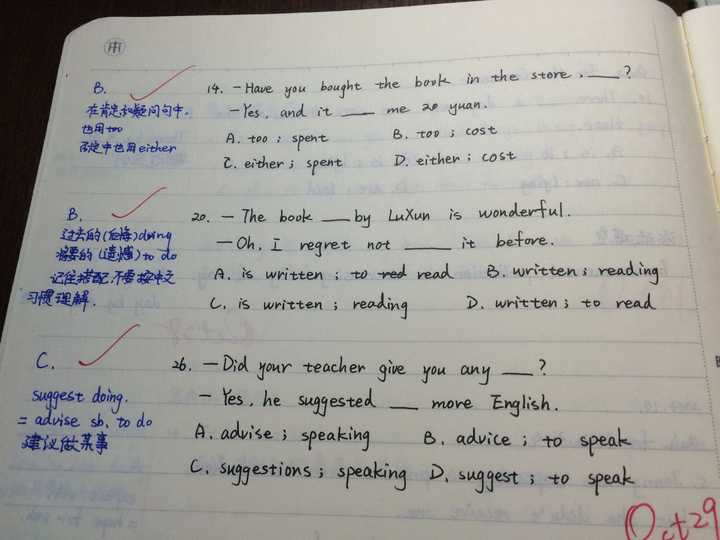 B.
在肯定和疑问句中.
也用too
否定中也用either
14. - Have you bought the book in the store, ____ ?
- Yes, and it ____ me 20 yuan.
A. too ; spent B. too ; cost
C. either ; spent D. either ; cost
B.
过去的(后悔)doing
将要的(遗憾) to do
记住搭配,不要按中文
习惯理解.
20. - The book ____ by LuXun is wonderful.
- Oh, I regret not ____ it before.
A. is written ; to red read B. written ; reading
C. is written ; reading D. written ; to read
C.
suggest doing.
= advise sb. to do
建议做某事
26. - Did your teacher give you any ____ ?
- Yes, he suggested ____ more English.
A. advise ; speaking B. advice ; to speak
C. suggestions ; speaking D. suggest ; to speak
Oct 29